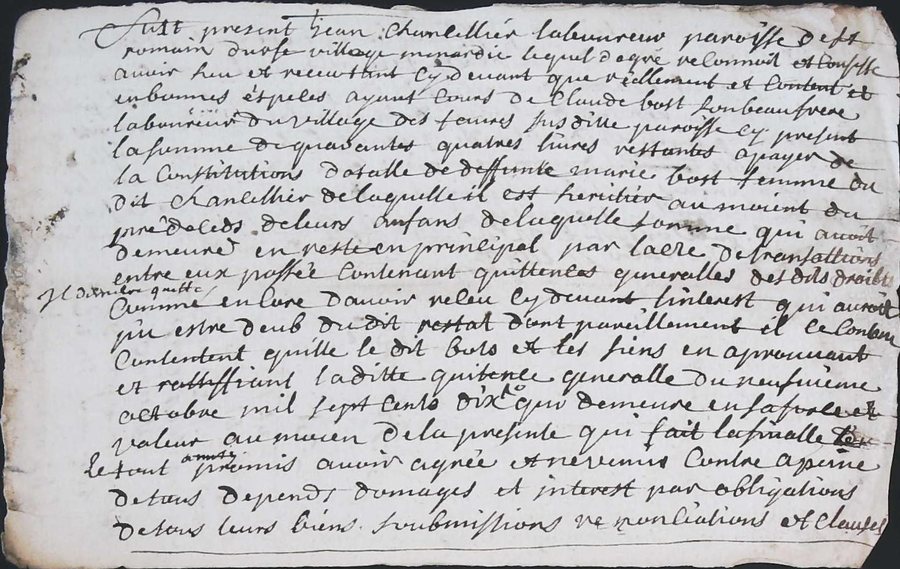 Fust present Jean Chancellier laboureur paroisse de st
romain durfe village menardie lequel de gré reconnoit et confesse
avoir heu et receu tant cy devant que réellement et content et
en bonnes especes ayant cours de Claude bost son beaufrere
laboureur du village des feuvres susditte paroisse cy present
la somme de quarantes quatres livres restantes a payer de
la Constitutions dotalle de deffunte marie bost femme du
dit Chancellier de laquelle il est heritier au moient du
prédeceds de leurs anfans de laquelle somme qui avoit
demeuré en reste en principal par lacte de transactions
entre eux passée Contenant quittences generalles des dits droits
Comme encore d'avoir receu cy devant linterest qui auroit
pu estre deub du dit restat dont pareillement il ce
Contentent quitte le dit bots et les siens en aprouvant
et rattiffiant laditte quitence generalle du neufvieme
octobre mil sept cents dix qui demeure en sa force et
valeur au moien de la presente qui fait la finalle
Le tout promis avoir agrée et ne venir Contre a peine
de tous depends domages et interest par obligations
de tous leurs biens soubmissions renonciations et clauses